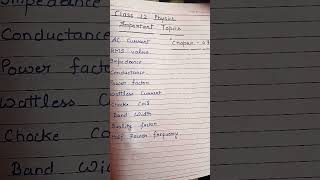 Class 12 Physics
Important Topic
AC Current
RMS value
Impedance
Conductance
Power factor
Wattless Current
Chocke Coil
Band Width
Quality factor
Half Power frequency
Impedance
Conductance
Power factor
Wattless
Chocke Co
Band Wid